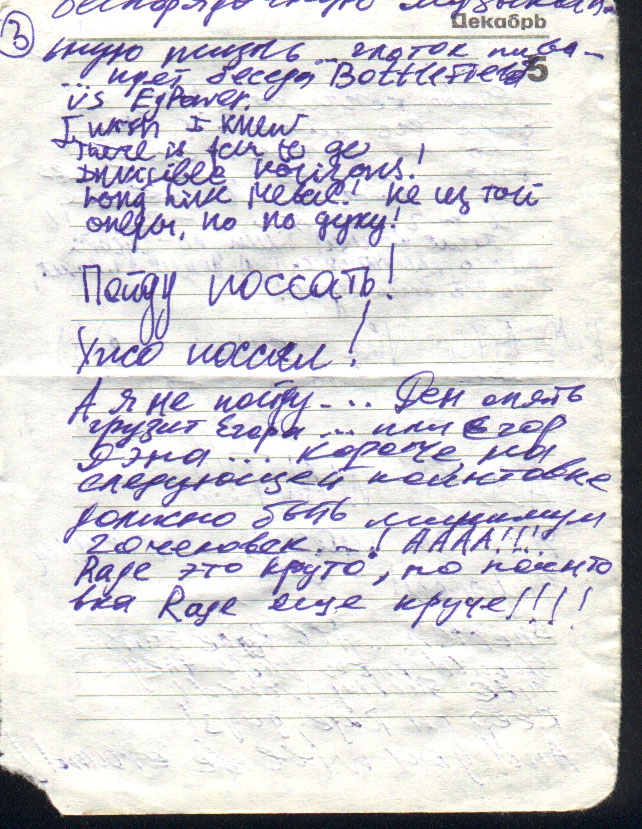 беспорядочную музыкаль
Декабрь
3
ную жизнь... глоток пива –
5
... идёт беседа Battlefield
vs EgPower.
I wish I knew
There is fear to go
Invisible Horizons!
Long Live Metal! не из той
оперы, но по духу!
Пойду поссать!
Ужо поссал!
А я не пойду... Ден опять
грузит Егора ... или Егор
Дэна .... Короче на
следующей поинтовке
должно быть минимум
20 человек...! АААА!!!
Rage это круто, но поинто
вка Rage еще круче!!!!